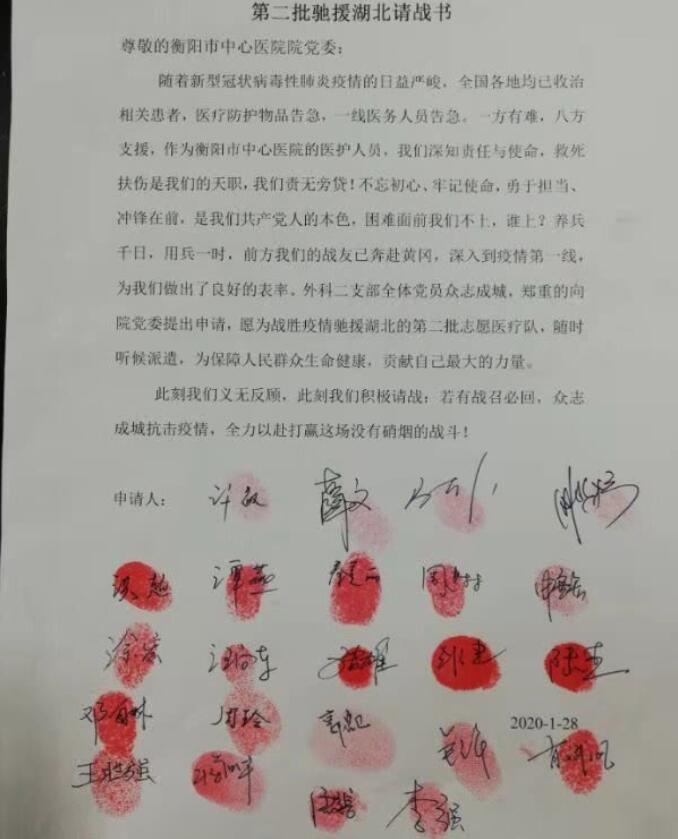 第二批驰援湖北请战书
尊敬的衡阳市中心医院院党委：
随着新型冠状病毒性肺炎疫情的日益严峻，全国各地均已收治
相关患者，医疗防护物品告急，一线医务人员告急。一方有难，八方
支援，作为衡阳市中心医院的医护人员，我们深知责任与使命，救死
扶伤是我们的天职，我们责无旁贷！不忘初心、牢记使命，勇于担当、
冲锋在前，是我们共产党人的本色，困难面前我们不上，谁上？养兵
千日，用兵一时，前方我们的战友已奔赴黄冈，深入到疫情第一线，
为我们做出了良好的表率。外科二支部全体党员众志成城，郑重的向
院党委提出申请，愿为战胜疫情驰援湖北的第二批志愿医疗队，随时
听候派遣，为保障人民群众生命健康，贡献自己最大的力量。
此刻我们义无反顾，此刻我们积极请战；若有战召必回，众志
成城抗击疫情，全力以赴打赢这场没有硝烟的战斗！
申请人： 许敏 薛文
谭燕
涂宏 陈杰
邓自林 周玲
2020-1-28
王胜强
李强